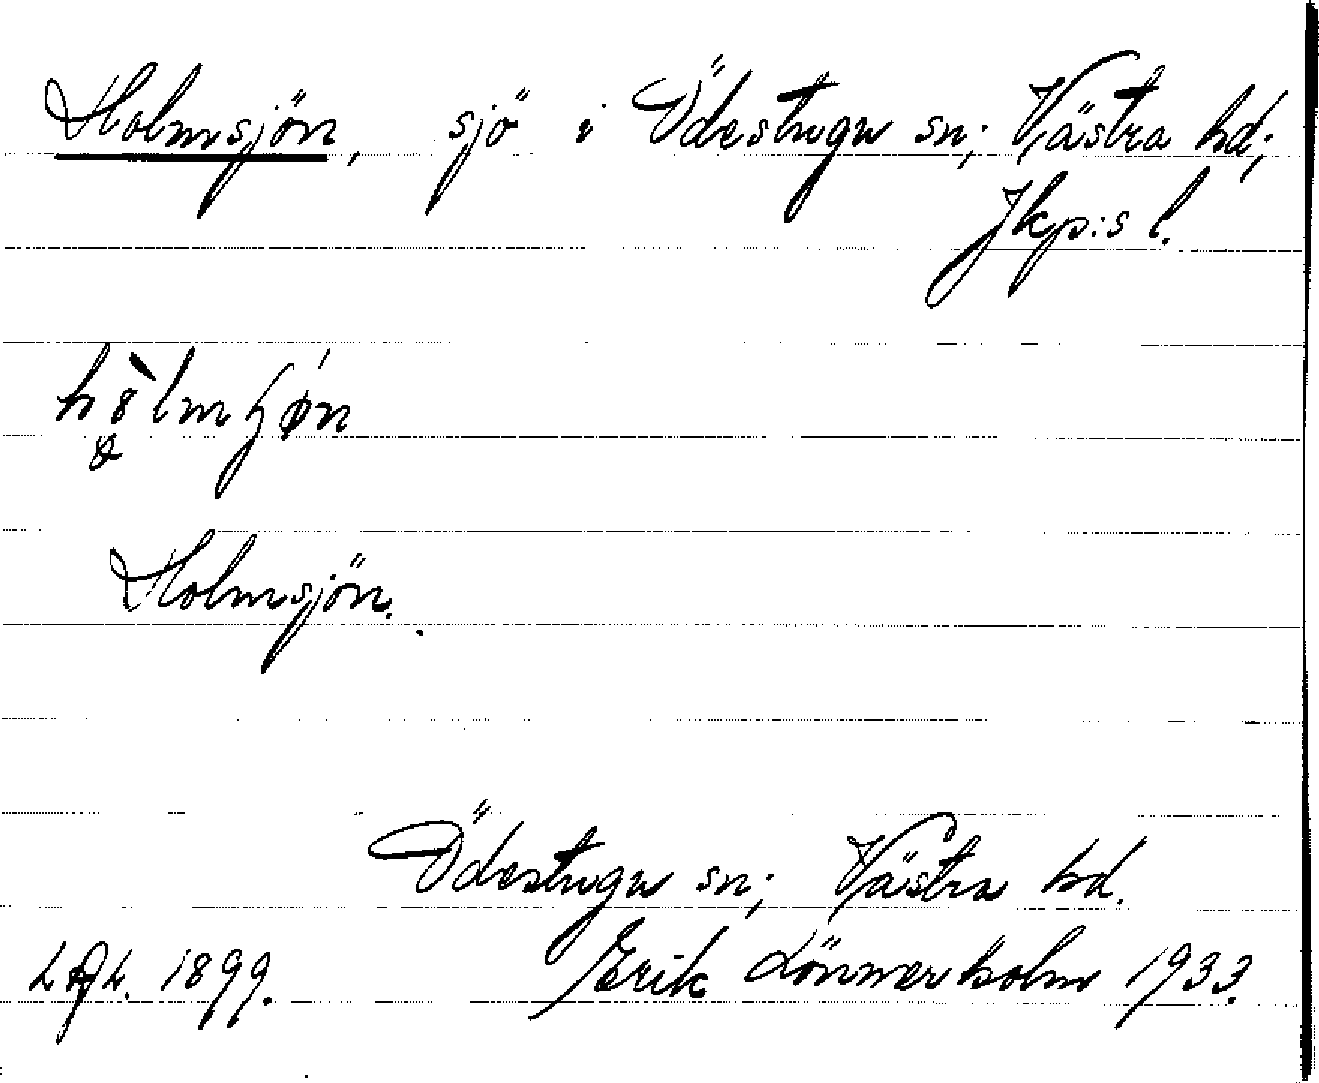 Holmsjön, sjö i Ödestugu sn; Västra hd;
Jkp:s l.
Holmsjön.
Ödestugu sn; Västra hd.
1899. Erik Lönnerholm 1933.